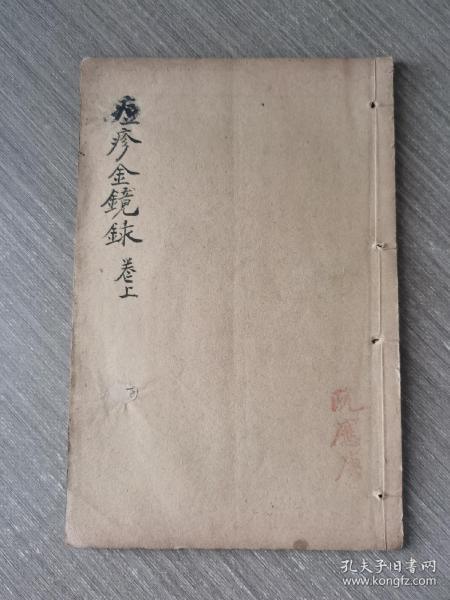 痘疹金鏡錄 卷上
阮應
孔夫子旧书网
www.kongfz.com